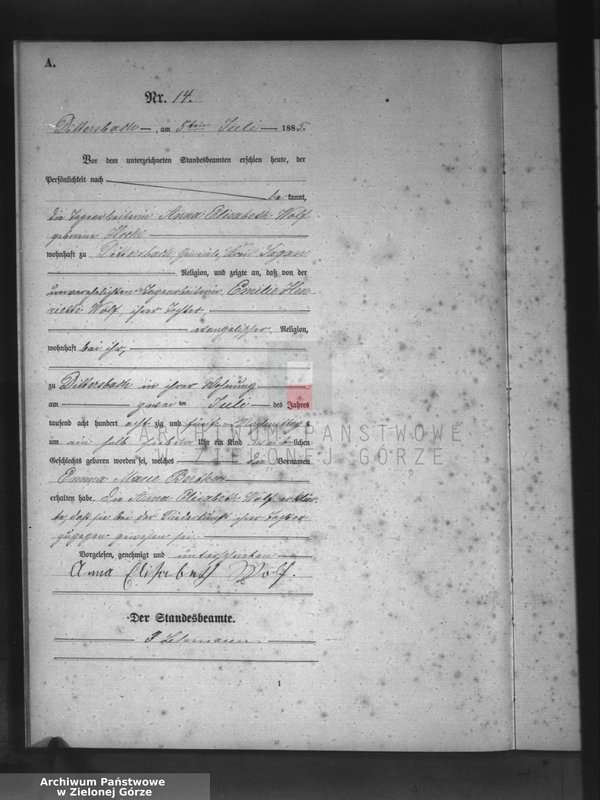 A.
Nr. 14.
Dittersbach, am 5ten Juli 1885.
Vor dem unterzeichneten Standesbeamten erschien heute, der
Persönlichkeit nach
be kannt,
die Tagearbeiterin Anna Elisabeth Wolf
geborene
wohnhaft zu Dittersbach, Kreis Sagan
Religion, und zeigte an, daß von der
unverehelichten Tagearbeiterin Emilie Hen-
riette Wolf, ihrer Tochter,
evangelischer Religion,
wohnhaft bei ihr,
zu Dittersbach in ihrer Wohnung
am zwei ten Juli des Jahres
tausend acht hundert acht zig und fünf Vormittags
um ein halb sieben Uhr ein Kind weiblichen
Geschlechts geboren worden sei, welches die Vornamen
Emma Marie
erhalten habe. Die Anna Elisabeth Wolf erklär-
te, daß sie bei der Niederkunft ihrer Tochter
zugegen gewesen sei.
Vorgelesen, genehmigt und unterschrieben
Anna Elisabeth Wolf.
Der Standesbeamte.
Lehmann
1
ARCHIWUM PAŃSTWOWE
W ZIELONEJ GÓRZE
Archiwum Państwowe
w Zielonej Górze